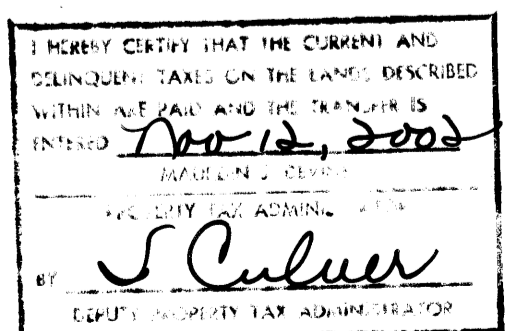 I HEREBY CERTIFY THAT THE CURRENT AND
DELINQUENT TAXES ON THE LANDS DESCRIBED
WITHIN ARE PAID AND THE TRANSFER IS
ENTERED Nov 12, 2002
PROPERTY TAX ADMINISTRATOR
BY J Culver
DEPUTY PROPERTY TAX ADMINISTRATOR